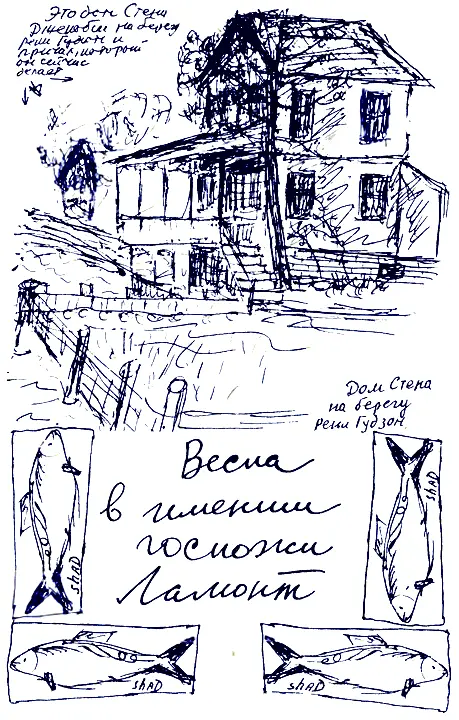 Это дом Стена
Дженобли на берегу
реки Гудзон и
причал, который
он сейчас
делает
Дом Стена
на берегу
реки Гудзон
Весна
в имении
госпожи
Ламонт
shAD
shAD
shAD
shAD